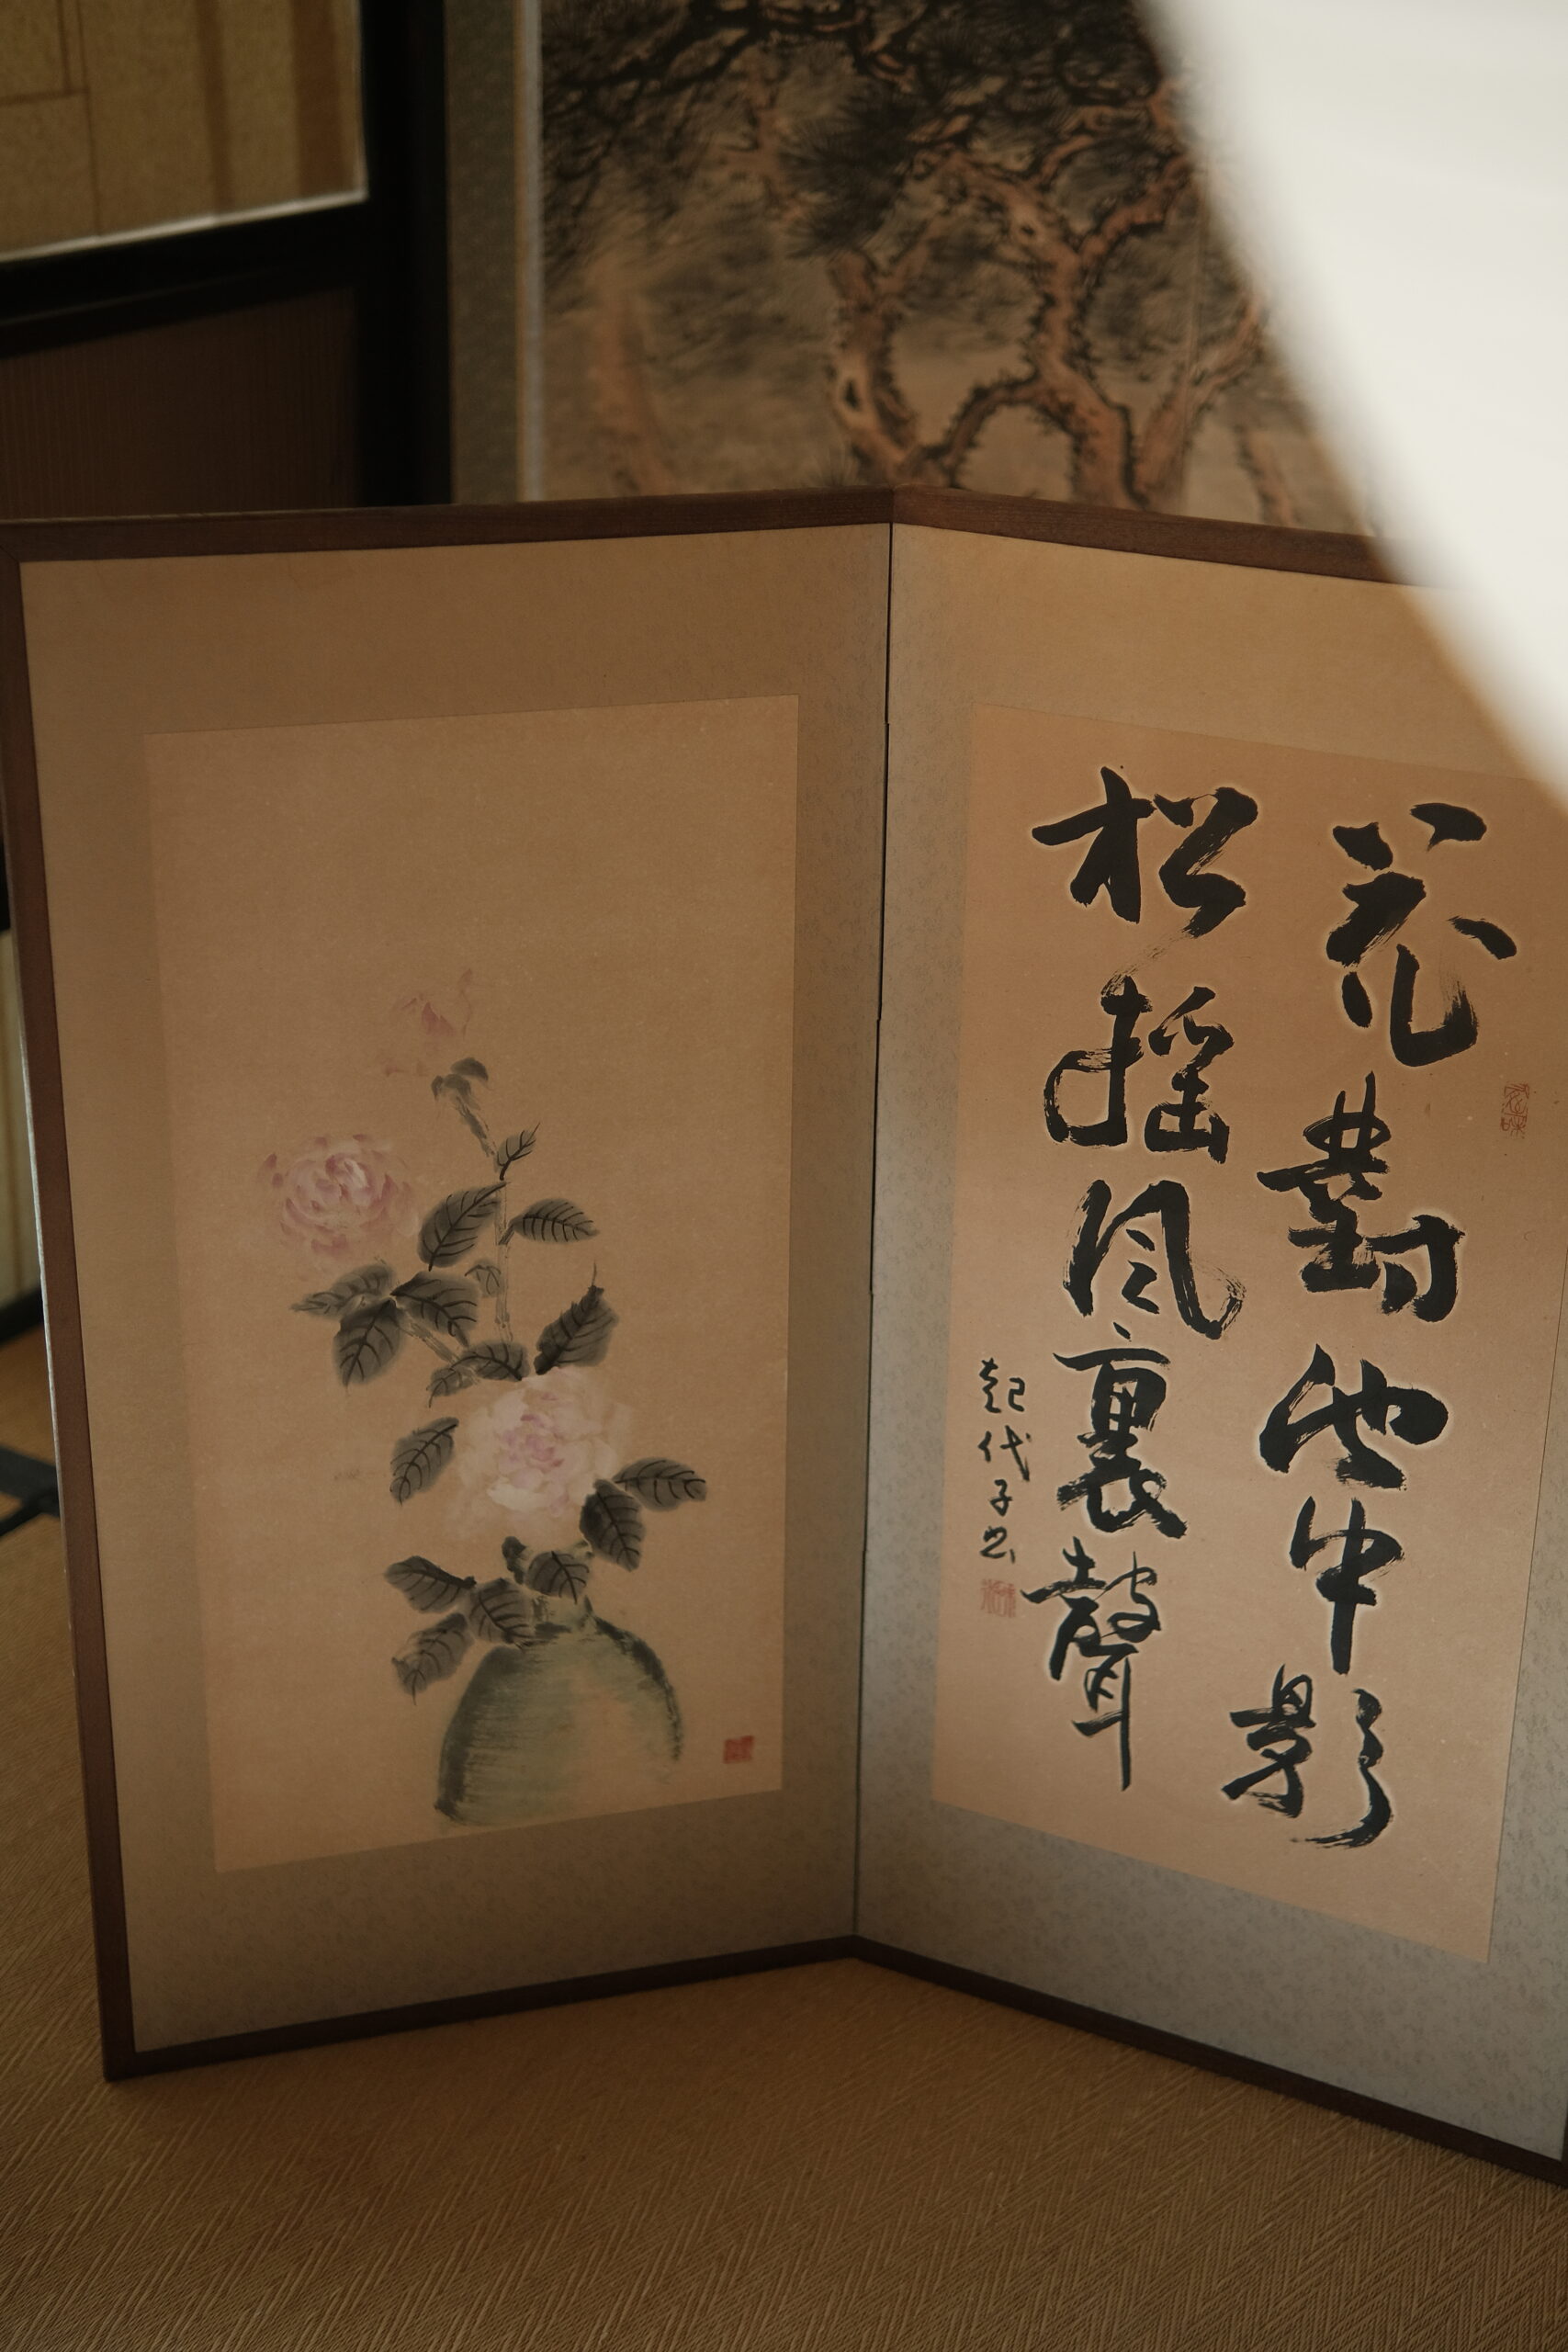 花對池中影
松摇風裏聲
起代子書